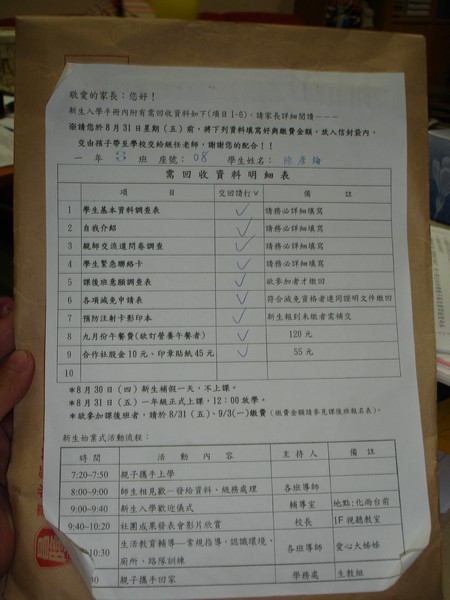 敬愛的家長：您好！
新生入學手冊內附有需回收資料如下(項目1-6)，請家長詳細閱讀－－－
※請您於8月31日星期(五)前，將下列資料填寫好與繳費金額，放入信封袋內，
交由孩子帶至學校交給級任老師，謝謝您的配合！！
一 年 8 班 座號： 08 學生姓名：
需回收資料明細表
項 目 交回請打∨ 備 註
1 學生基本資料調查表 ✓ 請務必詳細填寫
2 自我介紹 ✓ 請務必詳細填寫
3 親師交流道問卷調查 ✓ 請務必詳細填寫
4 學生緊急聯絡卡 ✓ 請務必詳細填寫
5 課後班意願調查表 ✓ 欲參加者才繳回
6 各項減免申請表 ✓ 符合減免資格者連同證明文件繳回
7 預防注射卡影印本 ✓ 新生報到未繳者需補交
8 九月份午餐費(欲訂營養午餐者) ✓ 120元
9 合作社股金10元、印章貼紙45元 ✓ 55元
10
*8月30日(四)新生補假一天，不上課。
*8月31日(五)一年級正式上課，12:00放學。
*欲參加課後班者，請於8/31(五)、9/3(一)繳費(繳費金額請參見課後班報名表)。
新生始業式活動流程：
時間 活 動 內 容 主 持 人 備 註
7:20~7:50 親子攜手上學
8:00~9:00 師生相見歡－發給資料、級務處理 各班導師
9:00~9:40 新生入學歡迎儀式 輔導室 地點:北兩台前
9:40~10:20 社團成果發表會影片欣賞 校長 1F視聽教室
10:30 生活教育輔導－常規指導，認識環境、 各班導師 愛心大姊姊
廁所、路隊訓練
親子攜手回家 學務處 生教組